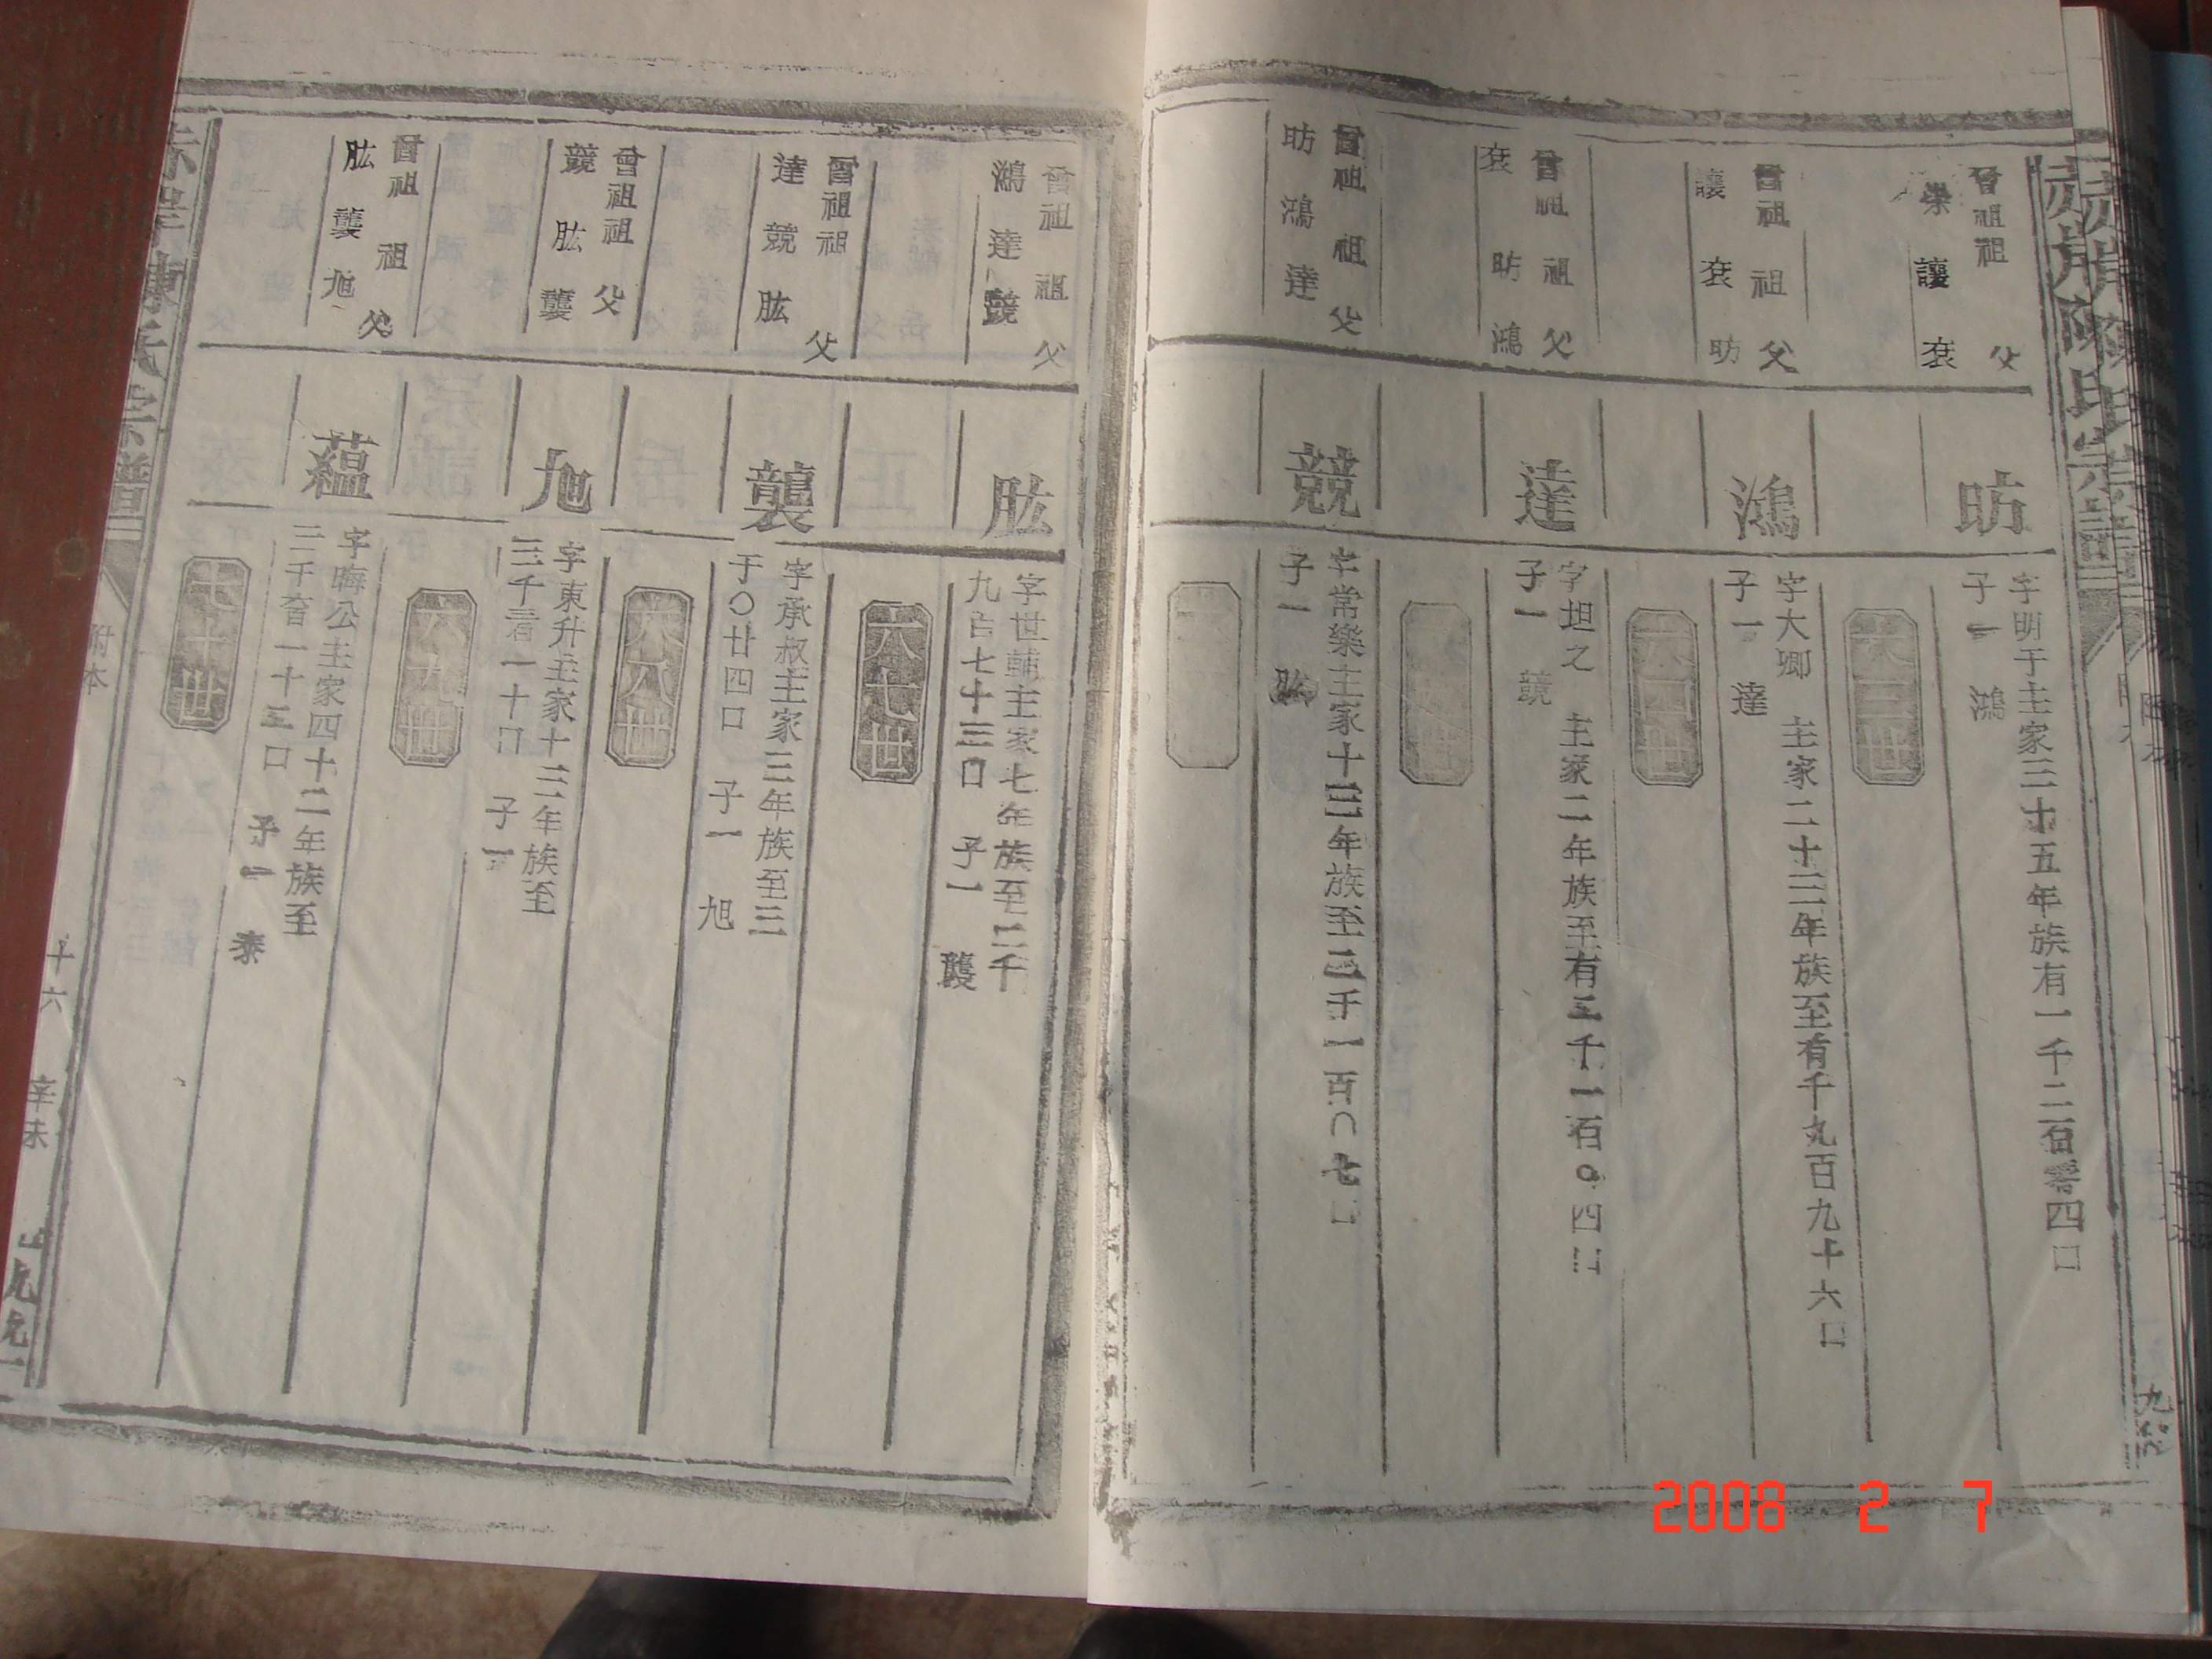 赤岸陳氏宗譜
曾祖 祖 父
榮 讓 袞
昉
字明于主家三十五年族有一千二百零四口
子一 鴻
六三世
曾祖 祖 父
讓 袞 昉
鴻
字大卿 主家二十三年族至有千九百九十六口
子一 達
曾祖 祖 父
袞 昉 鴻
達
字坦之 主家二年族至有三千一百〇四口
子一 競
曾祖 祖 父
昉 鴻 達
競
字常樂主家十三年族至三千一百〇七口
子一 肱
曾祖 祖 父
鴻 達 競
肱
字世輔主家七年族至二千
九百七十三口 子一 襲
六七世
曾祖 祖 父
達 競 肱
襲
字承叔主家三年族至三
千〇廿四口 子一 旭
六八世
曾祖 祖 父
競 肱 襲
旭
字東升主家十三年族至
三千 一十口 子一
六九世
曾祖 祖 父
肱 襲 旭
蘊
字晦公主家四十二年族至
三千 一十三口 子一 泰
七十世
赤岸陳氏宗譜
附本
十六
辛未
2008 2 7